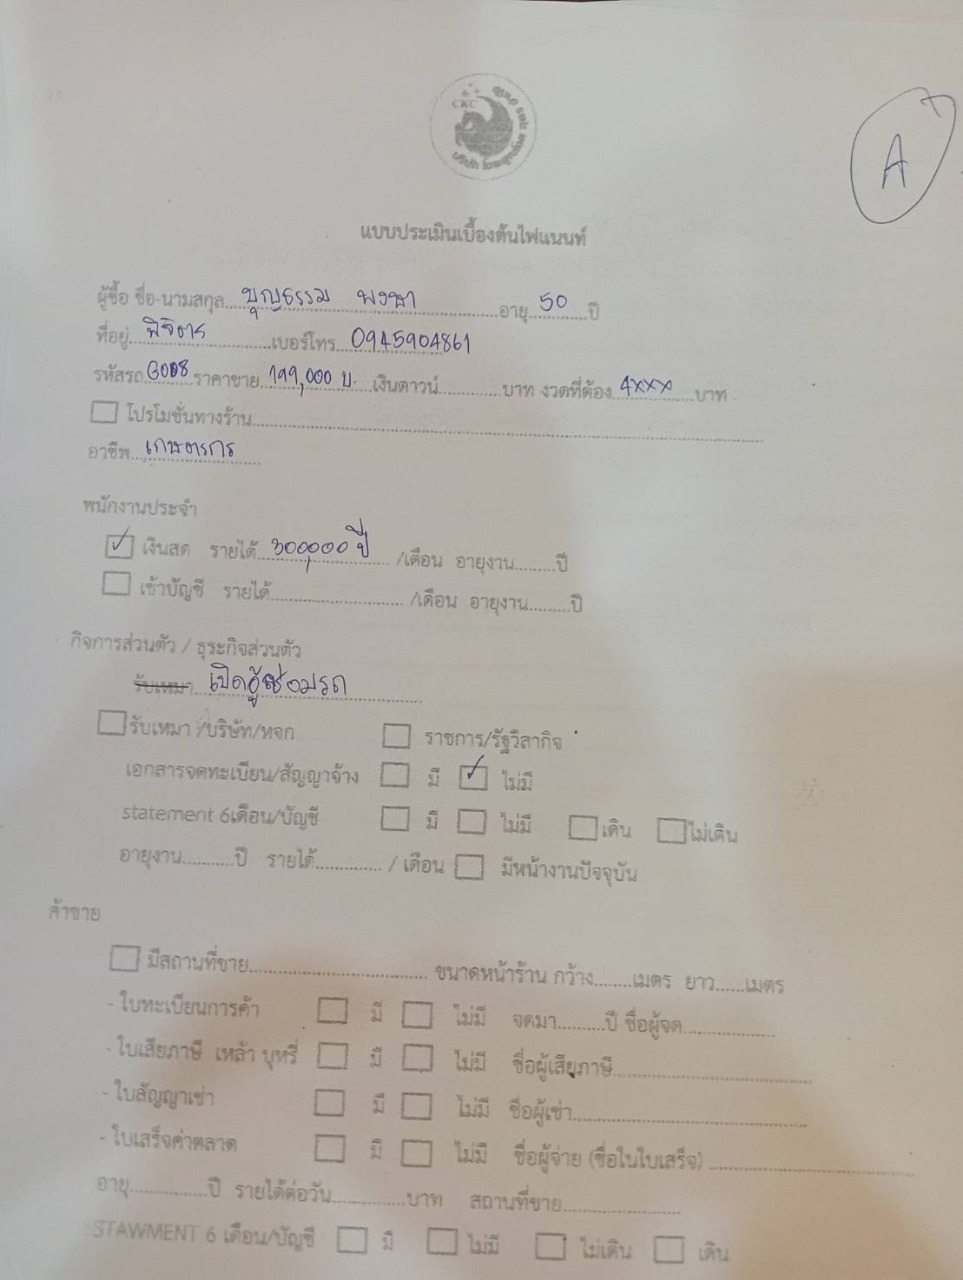 CKC
A
แบบประเมินเบื้องต้นไฟแนนท์
ผู้ซื้อ ชื่อ-นามสกุล บุญธรรม พงษา อายุ 50 ปี
ที่อยู่ พิจิตร เบอร์โทร 0945904861
รหัสรถ G008 ราคาขาย 199,000 บ. เงินดาวน์ บาท งวดที่ต้อง 4xxx บาท
โปรโมชั่นทางร้าน
อาชีพ เกษตรกร
พนักงานประจำ
✓ เงินสด รายได้ 300,000 ปี /เดือน อายุงาน ปี
เข้าบัญชี รายได้ /เดือน อายุงาน ปี
กิจการส่วนตัว / ธุระกิจส่วนตัว
รับเหมา เปิดอู่ซ่อมรถ
รับเหมา /บริษัท/หจก ราชการ/รัฐวิสากิจ
เอกสารจดทะเบียน/สัญญาจ้าง มี ✓ ไม่มี
statement 6เดือน/บัญชี มี ไม่มี เดิน ไม่เดิน
อายุงาน ปี รายได้ / เดือน มีหน้างานปัจจุบัน
ค้าขาย
มีสถานที่ขาย ขนาดหน้าร้าน กว้าง เมตร ยาว เมตร
- ใบทะเบียนการค้า มี ไม่มี จดมา ปี ชื่อผู้จด
- ใบเสียภาษี เหล้า บุหรี่ มี ไม่มี ชื่อผู้เสียภาษี
- ใบสัญญาเช่า มี ไม่มี ชื่อผู้เช่า
- ใบเสร็จค่าตลาด มี ไม่มี ชื่อผู้จ่าย (ชื่อในใบเสร็จ)
อายุ ปี รายได้ต่อวัน บาท สถานที่ขาย
STAWMENT 6 เดือน/บัญชี มี ไม่มี ไม่เดิน เดิน